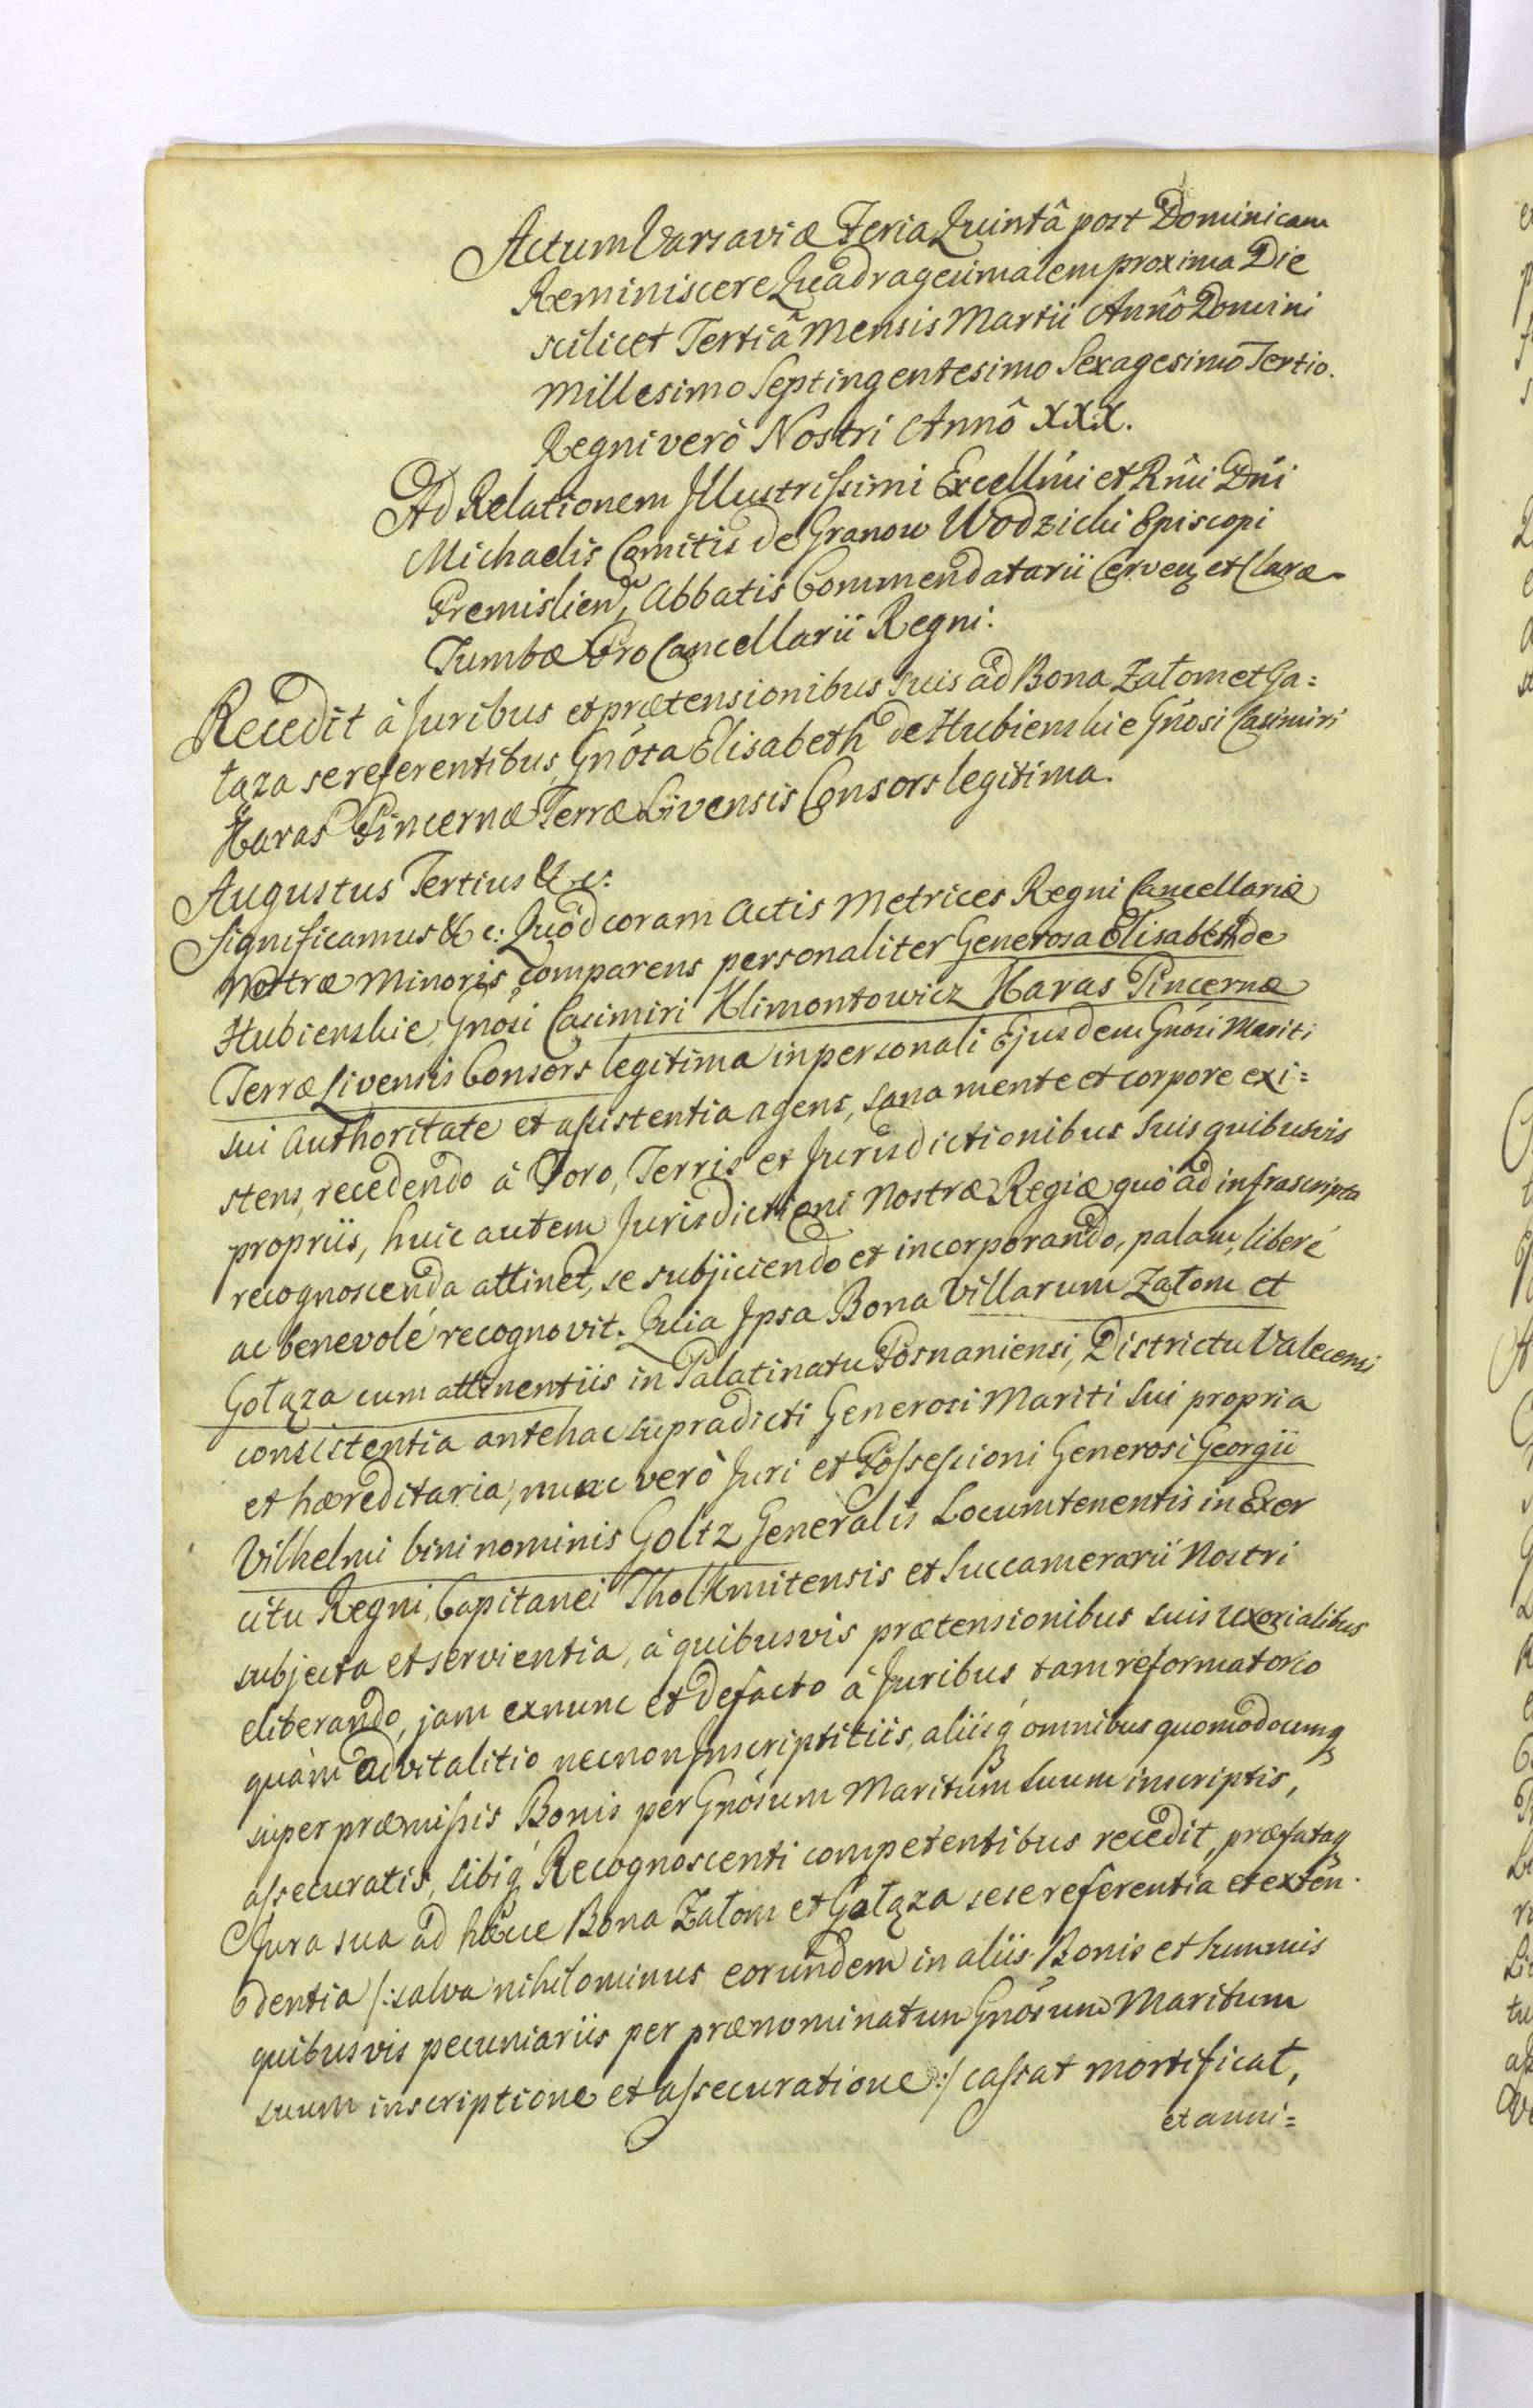 Actum Varsaviæ Feria Quintâ post Dominicam
Reminiscere Quadragesimalem proxima Die
scilicet Tertiâ Mensis Martii Annô Domini
Millesimo Septingentesimo Sexagesimô Tertio.
Regni verò Nostri Annô XXX.
Ad Relationem Illustrissimi Excellmi et Rmi Dni
Michaelis Comitis de Granow Wodzicki Episcopi
Premislien, Abbatis Commendatarii Cerven et Claræ
Tumbæ Pro Cancellarii Regni.
Recedit à Juribus et prætensionibus suis ad Bona Załom et Go=
łąza se referentibus, Gnosa Elisabeth de Hubienskie Gnosi Casimiri
Karas Pincernæ Terræ Livensis Consors legitima.
Augustus Tertius &c:
Significamus &c: Quod coram Actis Metrices Regni Cancellariæ
Nostræ Minoris comparens personaliter Generosa Elisabeth de
Hubienskie, Gnosi Casimiri Klimontowicz Karas Pincernæ
Terræ Livensis Consors legitima in personali Ejusdem Gnosi Mariti
sui Authoritate et assistentia agens, sana mente et corpore exi=
stens, recedendo à Foro, Terris et Jurisdictionibus suis quibusvis
propriis, huic autem Jurisdictioni Nostræ Regiæ quò ad infrascripta
recognoscenda attinet, se subjiciendo et incorporando, palam, liberé
ac benevolé recognovit. Quia Ipsa Bona Villarum Załom et
Gołąza cum attinentiis in Palatinatu Posnaniensi, Districtu Valecensi
consistentia antehac supradicti Generosi Mariti sui propria
et hæreditaria, nunc verò Juri et Possessioni Generosi Georgii
Vilhelmi bini nominis Goltz Generalis Locumtenentis in Exer
citu Regni, Capitanei Tholkmitensis et Succamerarii Nostri
subjecta et servientia, à quibusvis prætensionibus suis uxorialibus
eliberando, jam ex nunc et defacto à Juribus tam reformatorio
quàm advitalitio necnon Inscriptitiis, aliisq omnibus quomodocunq
super præmissis Bonis per Gnosum Maritum suum inscriptis,
assecuratis, sibiq Recognoscenti competentibus recedit, præfataq
Jura sua ad hæcce Bona Załom et Gołąza sese referentia et exten
dentia /: salva nihilominus eorundem in aliis Bonis et summis
quibusvis pecuniariis per prænominatum Gnosum Maritum
suum inscriptione et assecuratione :/ cassat mortificat,
et anni=